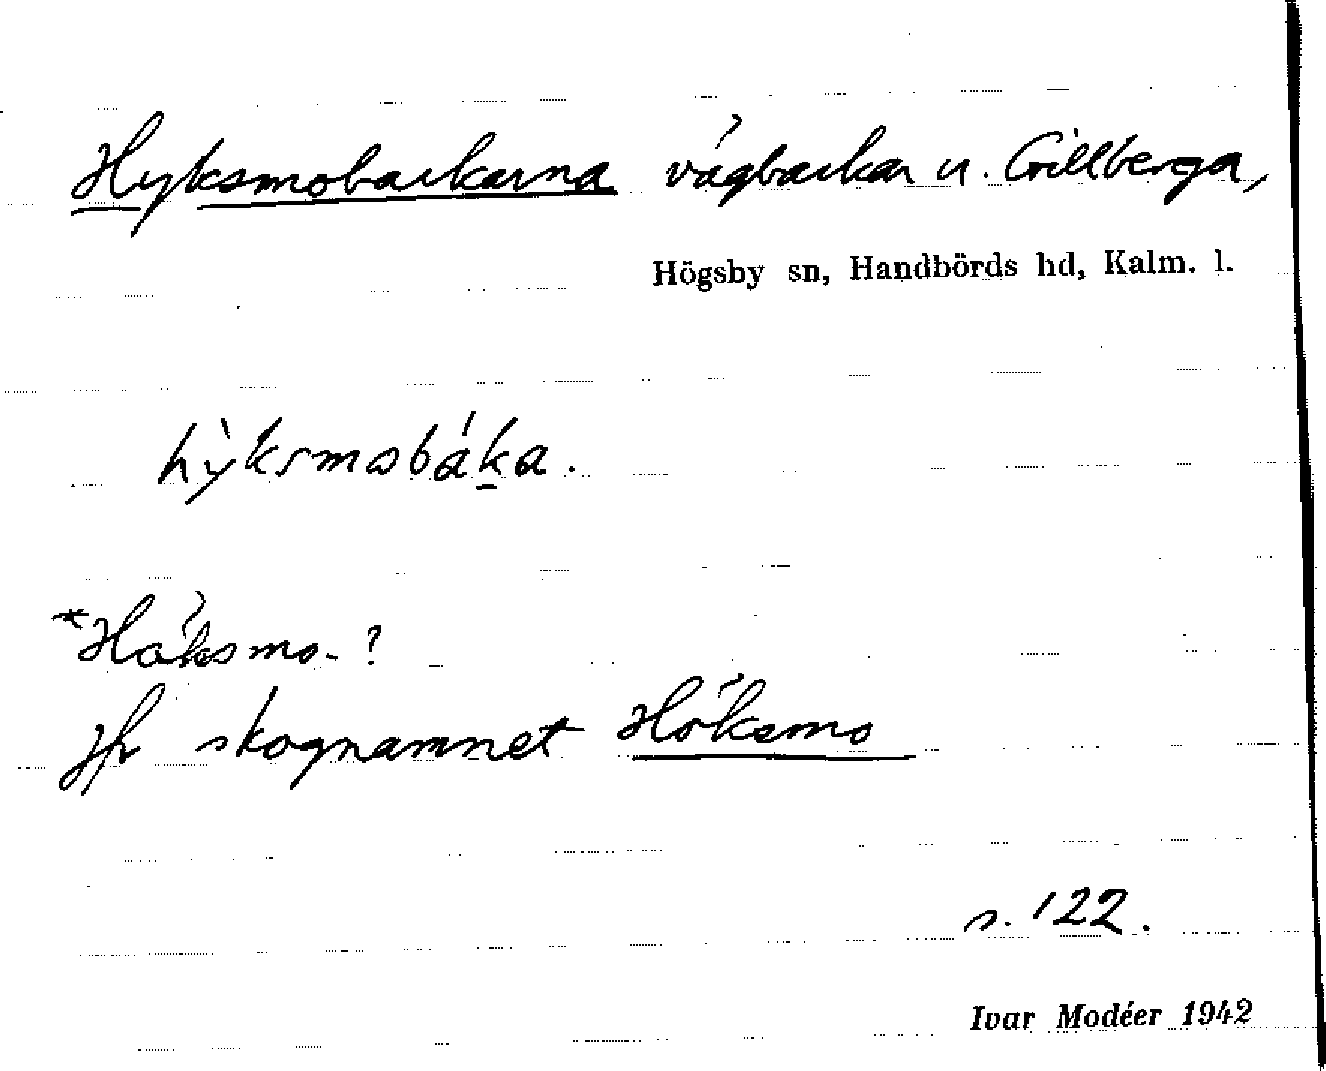 Hyksmobackarna vägbackar u. Gillberga,
Högsby sn, Handbörds hd, Kalm. l.
hỳksmobáka.
*Höksmo-?
Jfr skognamnet Höksmo
s. 122.
Ivar Modéer 1942